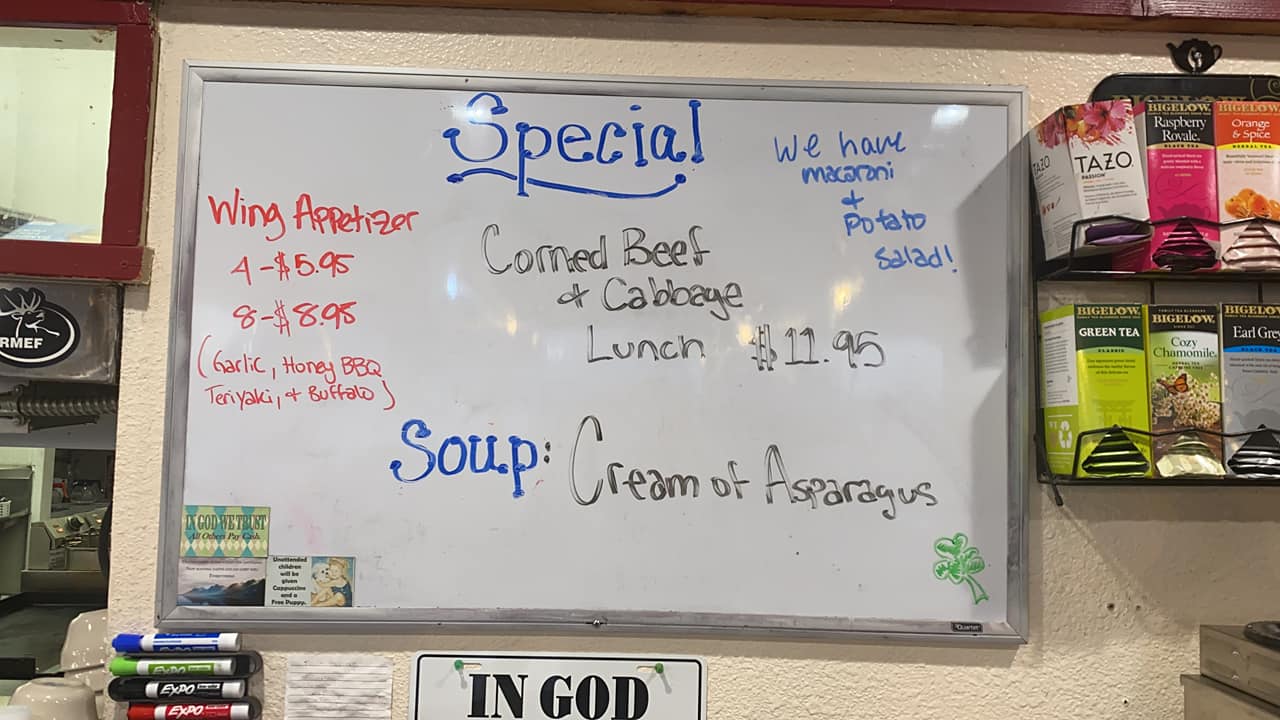 Special
We have
macaroni
+
Potato
Salad!
Wing Appetizer
4 - $5.95
8 - $8.95
(Garlic, Honey BBQ
Teriyaki, + Buffalo)
Corned Beef
+ Cabbage
Lunch $11.95
Soup: Cream of Asparagus
IN GOD WE TRUST
All Others Pay Cash.
Unattended
children
will be
given
Cappuccino
and a
Free Puppy.
Quartet
RMEF
EXPO
EXPO
EXPO
IN GOD
TAZO
TAZO
PASSION
BIGELOW
Raspberry
Royale
BLACK TEA
BIGELOW
Orange
& Spice
HERBAL TEA
BIGELOW
GREEN TEA
CLASSIC
BIGELOW
Cozy
Chamomile
HERBAL TEA
BIGELOW
Earl Grey
BLACK TEA